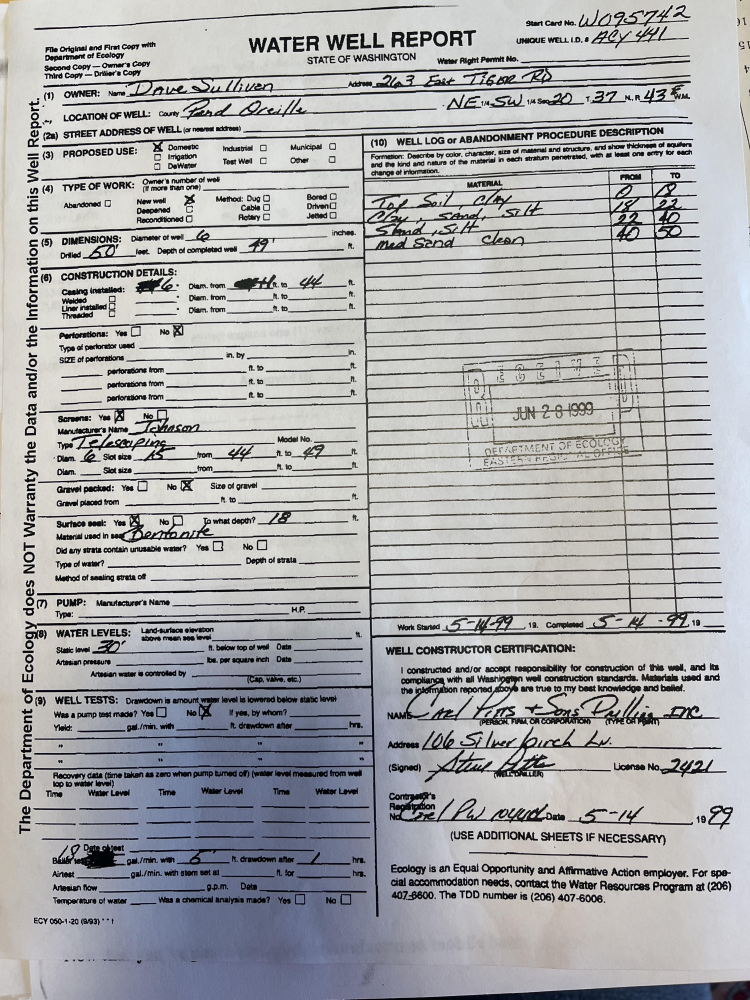 Start Card No. W095742
File Original and First Copy with
Department of Ecology
Second Copy — Owner's Copy
Third Copy — Driller's Copy
WATER WELL REPORT
STATE OF WASHINGTON
UNIQUE WELL I.D. # ACY 441
Water Right Permit No.
(1) OWNER: Name Dave Sullivan Address 263 East Tiger RD
LOCATION OF WELL: County Pend Oreille NE 1/4 SW 1/4 Sec 20 T. 37 N., R 43 E W.M.
(2a) STREET ADDRESS OF WELL (or nearest address)
(3) PROPOSED USE: X Domestic Industrial Municipal
Irrigation
DeWater Test Well Other
(4) TYPE OF WORK: Owner's number of well
(If more than one)
Abandoned New well X Method: Dug Bored
Deepened Cable Driven
Reconditioned Rotary Jetted
(5) DIMENSIONS: Diameter of well 6 inches.
Drilled 50' feet. Depth of completed well 49' ft.
(6) CONSTRUCTION DETAILS:
Casing installed: 6 " Diam. from ft. to 44 ft.
Welded " Diam. from ft. to ft.
Liner installed
Threaded " Diam. from ft. to ft.
Perforations: Yes No X
Type of perforator used
SIZE of perforations in. by in.
perforations from ft. to ft.
perforations from ft. to ft.
perforations from ft. to ft.
Screens: Yes X No
Manufacturer's Name Johnson
Type Telescoping Model No.
Diam. 6 Slot size 15 from 44 ft. to 49 ft.
Diam. Slot size from ft. to ft.
Gravel packed: Yes No X Size of gravel
Gravel placed from ft. to ft.
Surface seal: Yes X No To what depth? 18 ft.
Material used in seal Bentonite
Did any strata contain unusable water? Yes No
Type of water? Depth of strata
Method of sealing strata off
(7) PUMP: Manufacturer's Name
Type: H.P.
(8) WATER LEVELS: Land-surface elevation
above mean sea level ft.
Static level 30' ft. below top of well Date
Artesian pressure lbs. per square inch Date
Artesian water is controlled by
(Cap, valve, etc.)
(9) WELL TESTS: Drawdown is amount water level is lowered below static level
Was a pump test made? Yes No X If yes, by whom?
Yield: gal./min. with ft. drawdown after hrs.
" " " "
" " " "
Recovery data (time taken as zero when pump turned off) (water level measured from well
top to water level)
Time Water Level Time Water Level Time Water Level
Date of test
Bailer test 18 gal./min. with 5 ft. drawdown after 1 hrs.
Airtest gal./min. with stem set at ft. for hrs.
Artesian flow g.p.m. Date
Temperature of water Was a chemical analysis made? Yes No
ECY 050-1-20 (9/93)
(10) WELL LOG or ABANDONMENT PROCEDURE DESCRIPTION
Formation: Describe by color, character, size of material and structure, and show thickness of aquifers
and the kind and nature of the material in each stratum penetrated, with at least one entry for each
change of information.
MATERIAL FROM TO
Top Soil, Clay 0 18
Clay, Sand, Silt 18 22
Sand, Silt 22 40
med Sand Clean 40 50
JUN 28 1999
DEPARTMENT OF ECOLOGY
EASTERN REGIONAL OFFICE
Work Started 5-14-99, 19. Completed 5-14-99, 19
WELL CONSTRUCTOR CERTIFICATION:
I constructed and/or accept responsibility for construction of this well, and its
compliance with all Washington well construction standards. Materials used and
the information reported above are true to my best knowledge and belief.
NAME Carl Pitts & Sons Drilling INC
(PERSON, FIRM, OR CORPORATION) (TYPE OR PRINT)
Address 106 Silver birch Ln.
(Signed) License No. 2421
(WELL DRILLER)
Contractor's
Registration
No. Date 5-14, 1999
(USE ADDITIONAL SHEETS IF NECESSARY)
Ecology is an Equal Opportunity and Affirmative Action employer. For spe-
cial accommodation needs, contact the Water Resources Program at (206)
407-6600. The TDD number is (206) 407-6006.
The Department of Ecology does NOT Warranty the Data and/or the Information on this Well Report.